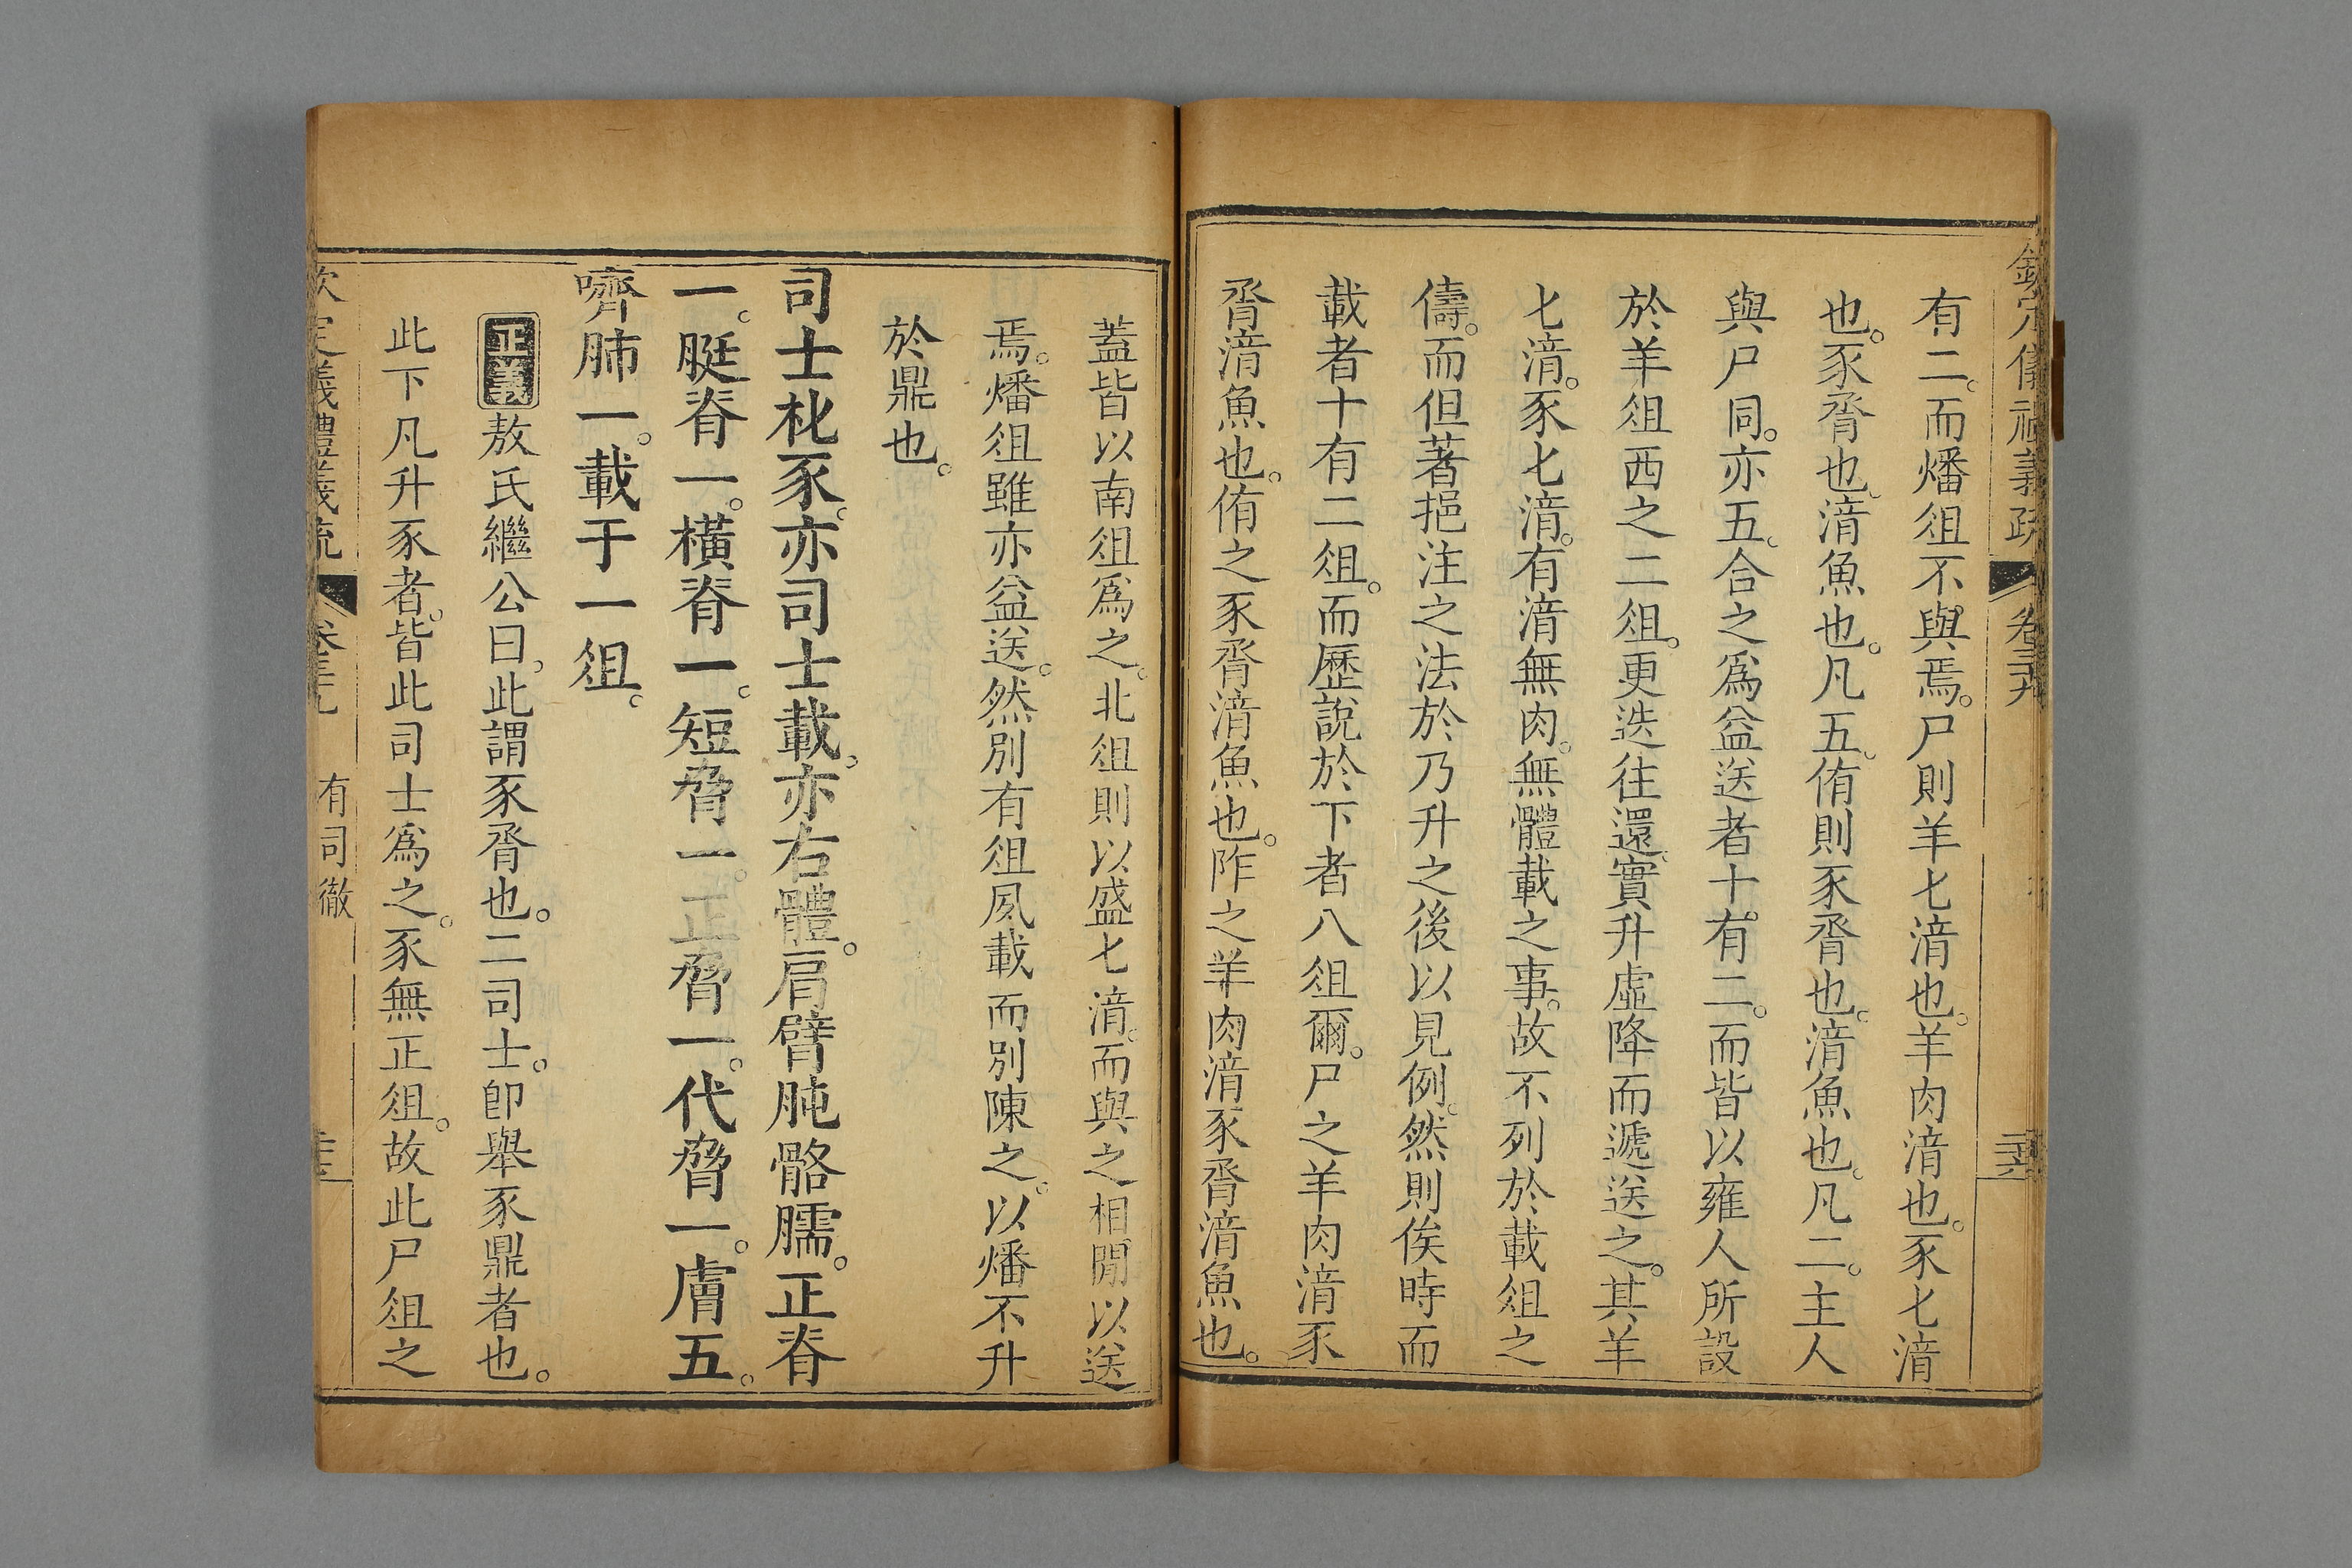 欽定儀禮義疏 卷三十九
有二。而燔俎不與焉。尸則羊匕湇也。羊肉湇也。豕匕湇
也。豕脀也。湇魚也。凡五。侑則豕脀也。湇魚也。凡二。主人
與尸同。亦五。合之爲益送者十有二。而皆以雍人所設
於羊俎西之二俎。更迭往還。實升虛降而遞送之。其羊
匕湇。豕匕湇。有湇無肉。無體載之事。故不列於載俎之
儔。而但著挹注之法於乃升之後以見例。然則俟時而
載者十有二俎。而歷說於下者八俎爾。尸之羊肉湇豕
脀湇魚也。侑之豕脀湇魚也。阼之羊肉湇豕脀湇魚也。
蓋皆以南俎爲之。北俎則以盛匕湇。而與之相閒以送
焉。燔俎雖亦益送。然別有俎夙載而別陳之。以燔不升
於鼎也。
司士朼豕。亦司士載。亦右體。肩臂肫骼臑。正脊
一。脡脊一。橫脊一。短脅一。正脅一。代脅一。膚五。
嚌肺一。載于一俎。
正義敖氏繼公曰。此謂豕脀也。二司士。卽舉豕鼎者也。
此下凡升豕者。皆此司士爲之。豕無正俎。故此尸俎之
欽定儀禮義疏 卷三十九 有司徹